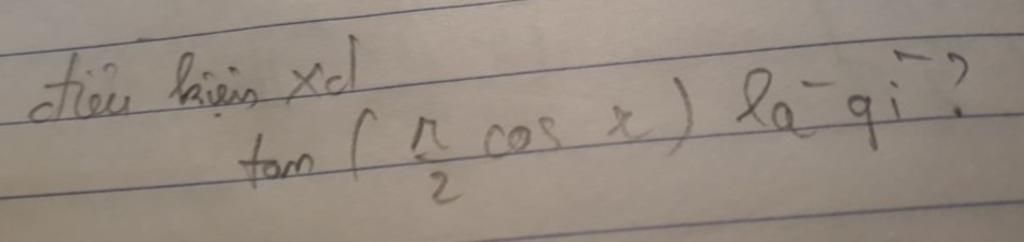 điều kiện xd
tan ( π/2 cos x ) là gì ?